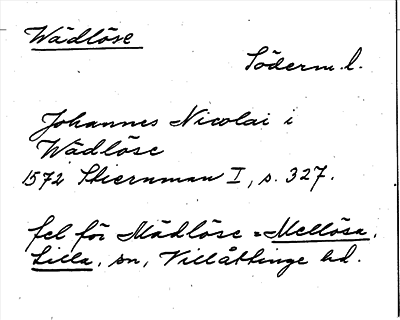 Wädlöse
Söderm. l.
Johannes Nicolai i
Wädlöse
1572 Stiernman I, s. 327.
fel för Mädlöse = Mellösa,
Lilla, sn, Villåttinge hd.